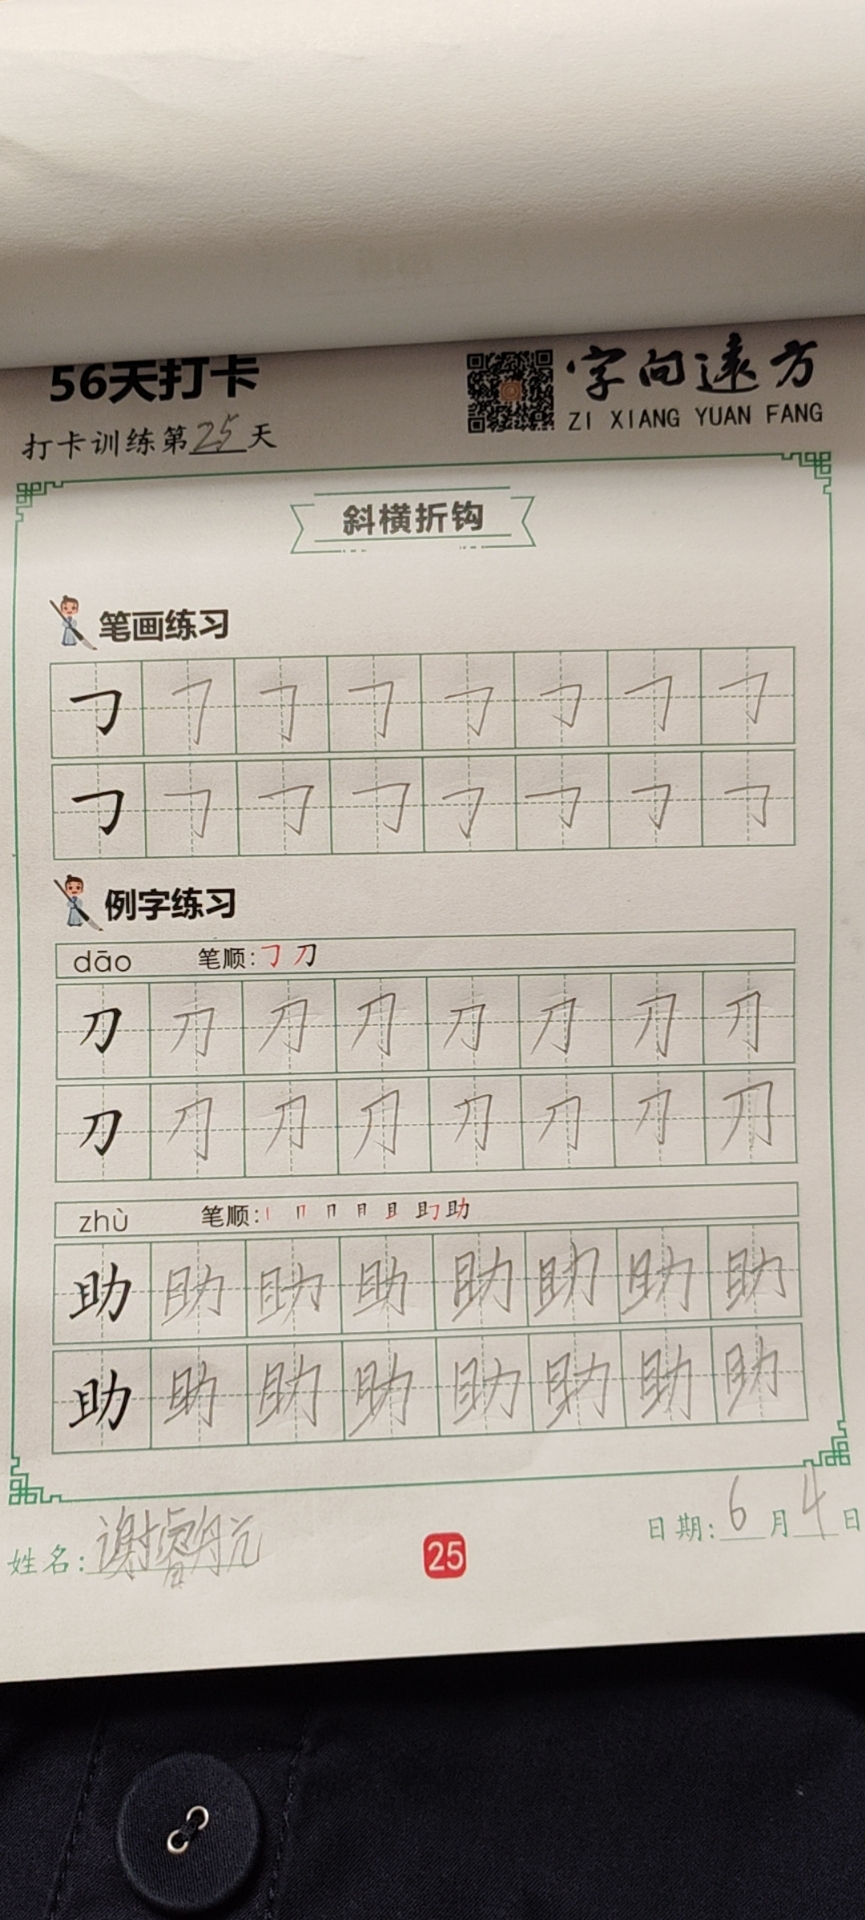 56天打卡
字向远方
ZI XIANG YUAN FANG
打卡训练第25天
斜横折钩
笔画练习
㇆ ㇆ ㇆ ㇆ ㇆ ㇆ ㇆ ㇆
㇆ ㇆ ㇆ ㇆ ㇆ ㇆ ㇆ ㇆
例字练习
dāo 笔顺:㇆ 刀
刀 刀 刀 刀 刀 刀 刀 刀
刀 刀 刀 刀 刀 刀 刀 刀
zhù 笔顺: 助
助 助 助 助 助 助 助 助
助 助 助 助 助 助 助 助
姓名:谢睿
25
日期:6月4日